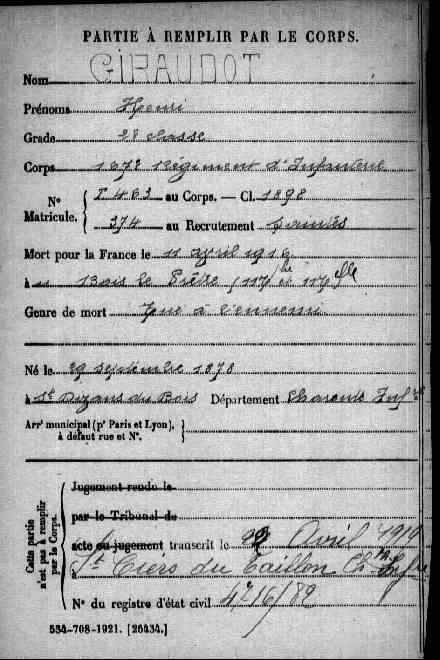 PARTIE À REMPLIR PAR LE CORPS.
Nom GIRAUDOT
Prénoms Henri
Grade 2e classe
Corps 167e Régiment d'Infanterie
N° Matricule. { I 463 au Corps. — Cl. 1898
374 au Recrutement Saintes
Mort pour la France le 11 avril 1916
à Bois le Prêtre (Mthe et Mlle
Genre de mort Tué à l'ennemi
Né le 29 septembre 1878
à St Dizans du Bois Département Charente Infre
Arrt municipal (pr Paris et Lyon), à défaut rue et N°. }
Cette partie n'est pas à remplir par le Corps.
Jugement rendu le
par le Tribunal de
acte ou jugement transcrit le 22 Avril 1919
à St Ciers du Taillon Ch. Infre
N° du registre d'état civil 4216/82
534-708-1921. [26434.]